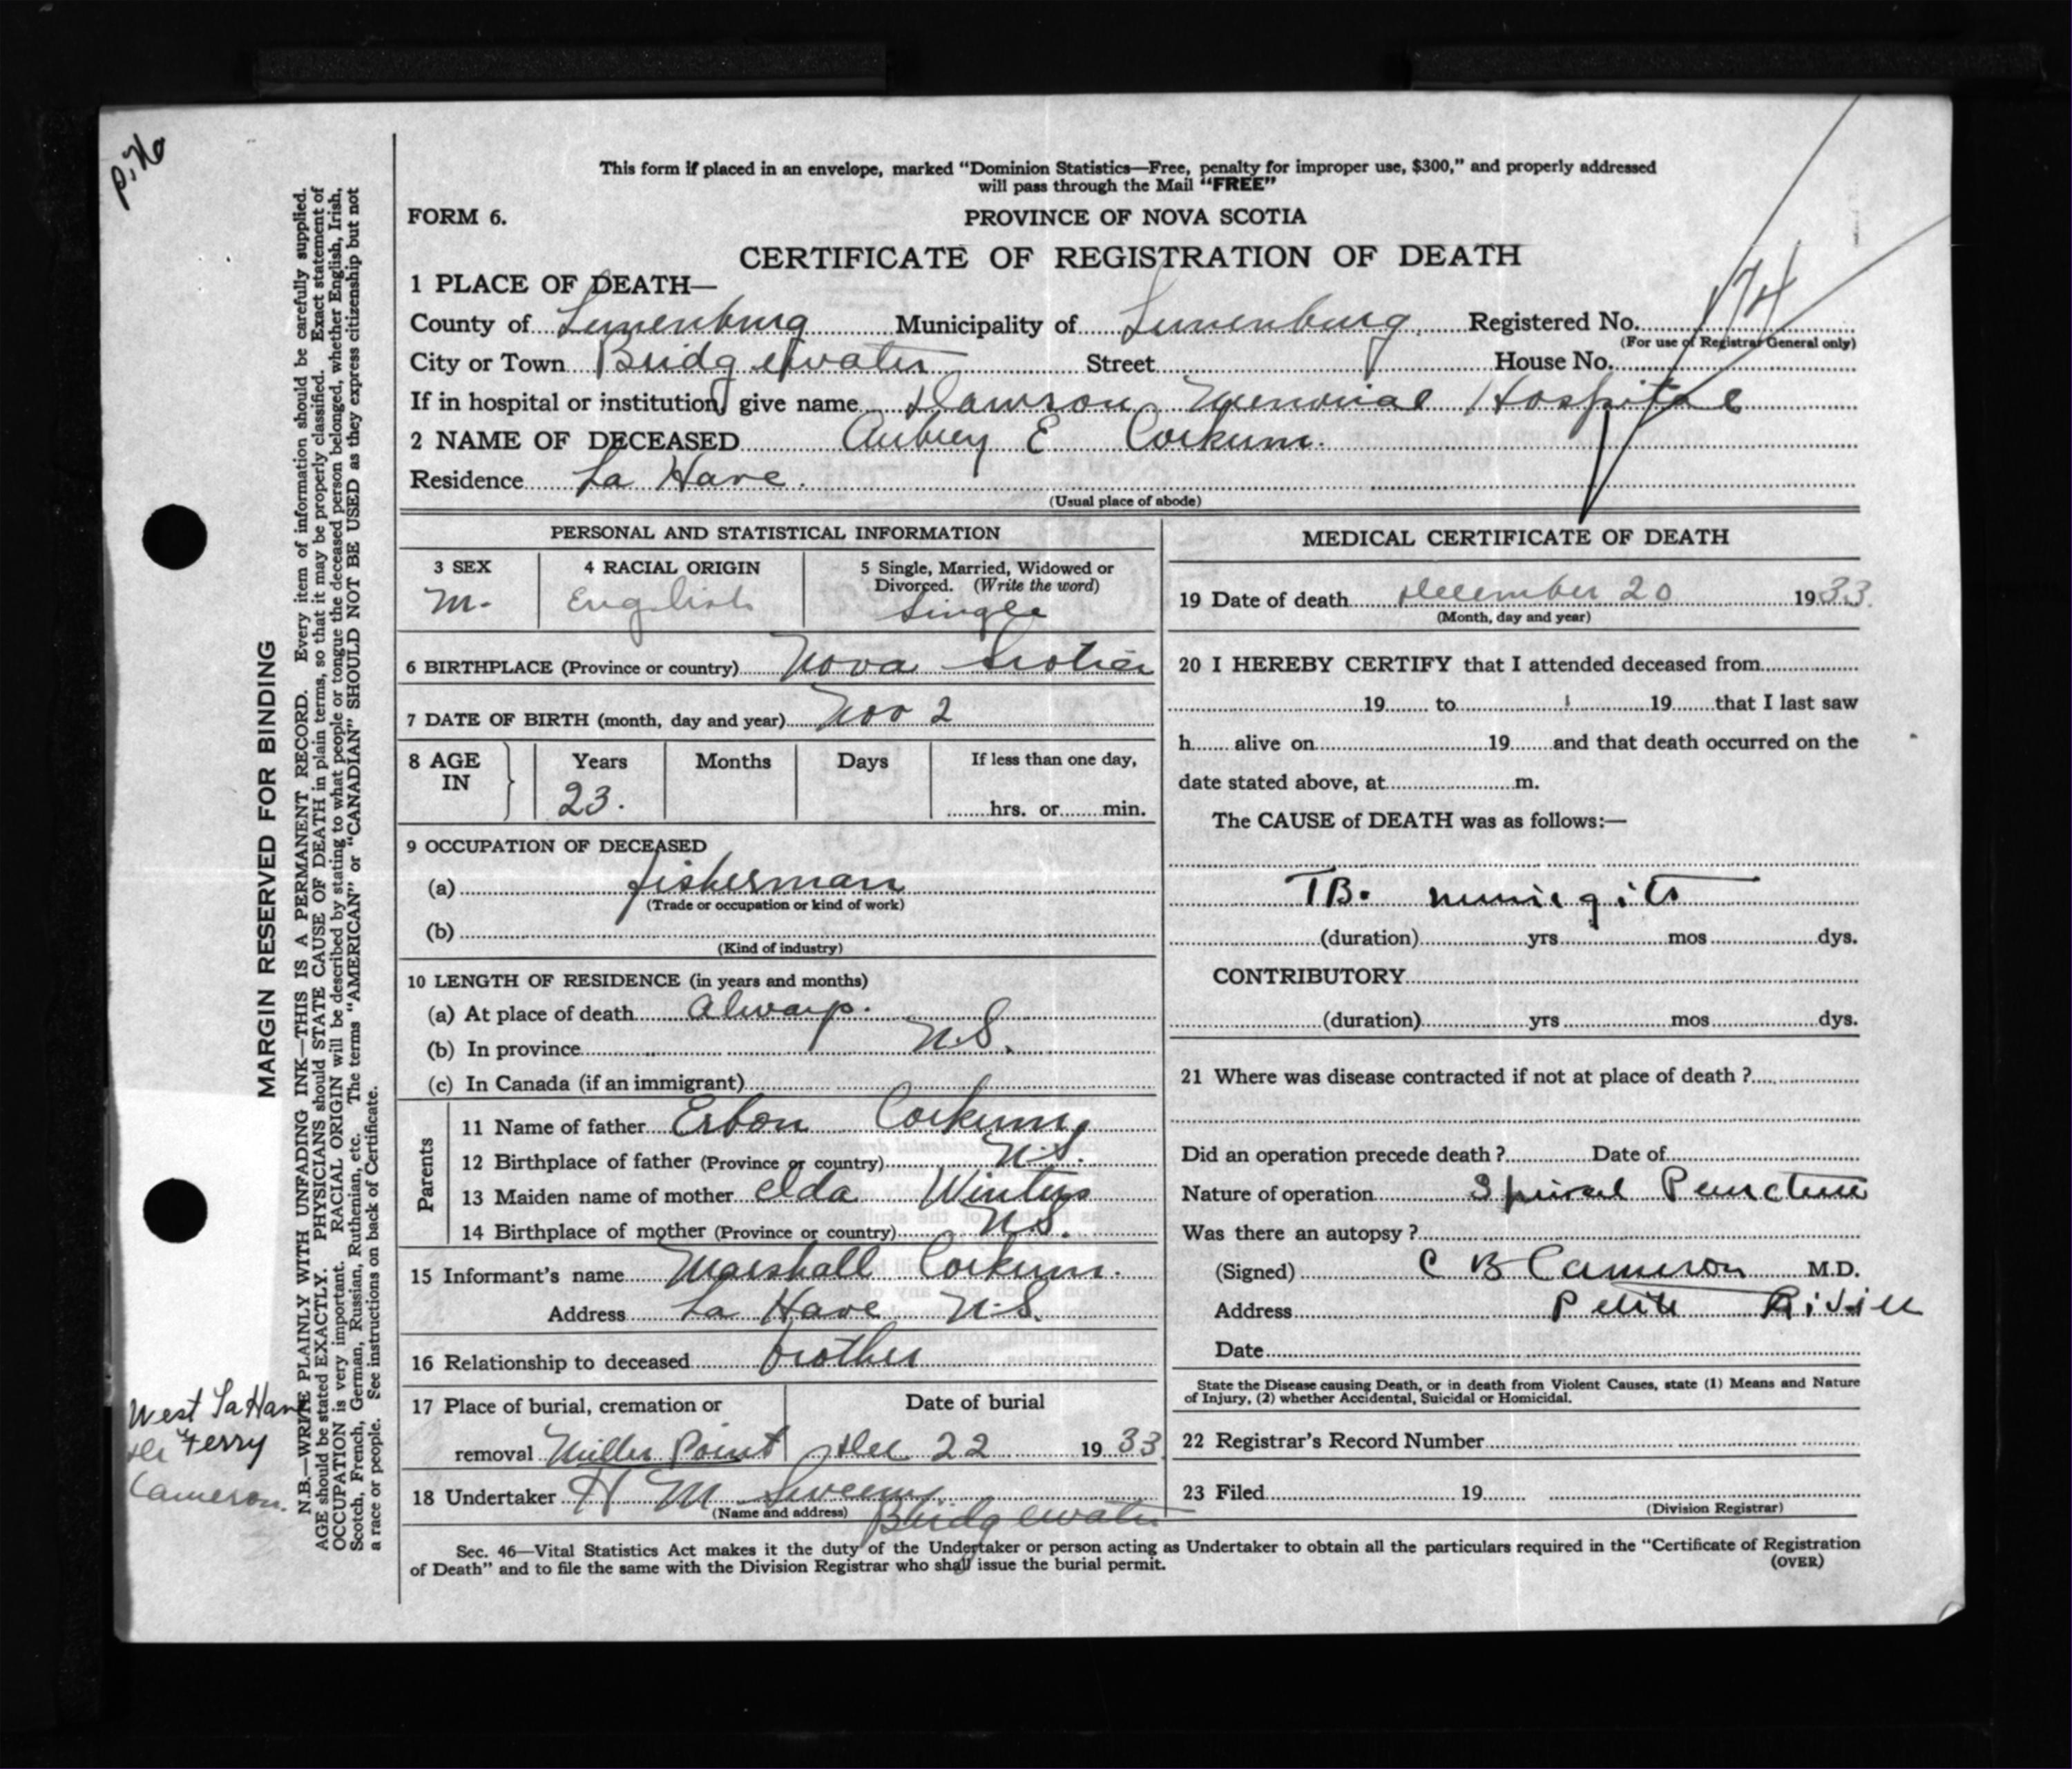 P. 76
This form if placed in an envelope, marked "Dominion Statistics—Free, penalty for improper use, $300," and properly addressed
will pass through the Mail "FREE"
FORM 6. PROVINCE OF NOVA SCOTIA
CERTIFICATE OF REGISTRATION OF DEATH
1 PLACE OF DEATH—
County of Lunenburg Municipality of Lunenburg. Registered No. 174
(For use of Registrar General only)
City or Town Bridgewater Street House No.
If in hospital or institution, give name Dawson Memorial Hospital
2 NAME OF DECEASED Aubrey E Corkum.
Residence La Have.
(Usual place of abode)
PERSONAL AND STATISTICAL INFORMATION
3 SEX 4 RACIAL ORIGIN 5 Single, Married, Widowed or
Divorced. (Write the word)
M. English Single
6 BIRTHPLACE (Province or country) Nova Scotia
7 DATE OF BIRTH (month, day and year) Nov 2
8 AGE IN Years Months Days If less than one day,
23. hrs. or min.
9 OCCUPATION OF DECEASED
(a) fisherman
(Trade or occupation or kind of work)
(b)
(Kind of industry)
10 LENGTH OF RESIDENCE (in years and months)
(a) At place of death always.
(b) In province N.S.
(c) In Canada (if an immigrant)
Parents
11 Name of father Erbon Corkum
12 Birthplace of father (Province or country) N.S.
13 Maiden name of mother Elda Winters
14 Birthplace of mother (Province or country) N.S.
15 Informant's name Marshall Corkum.
Address La Have N.S.
16 Relationship to deceased brother
17 Place of burial, cremation or Date of burial
removal Miller Point Dec 22 1933
18 Undertaker H M Sweeny
(Name and address) Bridgewater
MEDICAL CERTIFICATE OF DEATH
19 Date of death December 20 1933.
(Month, day and year)
20 I HEREBY CERTIFY that I attended deceased from
19 to 19 that I last saw
h alive on 19 and that death occurred on the
date stated above, at m.
The CAUSE of DEATH was as follows:—
TB.
(duration) yrs mos dys.
CONTRIBUTORY
(duration) yrs mos dys.
21 Where was disease contracted if not at place of death ?
Did an operation precede death ? Date of
Nature of operation Spinal Puncture
Was there an autopsy ?
(Signed) C B Cameron M.D.
Address Petite Riviere
Date
State the Disease causing Death, or in death from Violent Causes, state (1) Means and Nature
of Injury, (2) whether Accidental, Suicidal or Homicidal.
22 Registrar's Record Number
23 Filed 19
(Division Registrar)
Sec. 46—Vital Statistics Act makes it the duty of the Undertaker or person acting as Undertaker to obtain all the particulars required in the "Certificate of Registration
of Death" and to file the same with the Division Registrar who shall issue the burial permit.
(OVER)
MARGIN RESERVED FOR BINDING
N.B.—WRITE PLAINLY WITH UNFADING INK—THIS IS A PERMANENT RECORD. Every item of information should be carefully supplied.
AGE should be stated EXACTLY. PHYSICIANS should STATE CAUSE OF DEATH in plain terms, so that it may be properly classified. Exact statement of
OCCUPATION is very important. RACIAL ORIGIN will be described by stating to what people or tongue the deceased person belonged, whether English, Irish,
Scotch, French, German, Russian, Ruthenian, etc. The terms "AMERICAN" or "CANADIAN" SHOULD NOT BE USED as they express citizenship but not
a race or people. See instructions on back of Certificate.
West La Have
Ferry
Cameron.